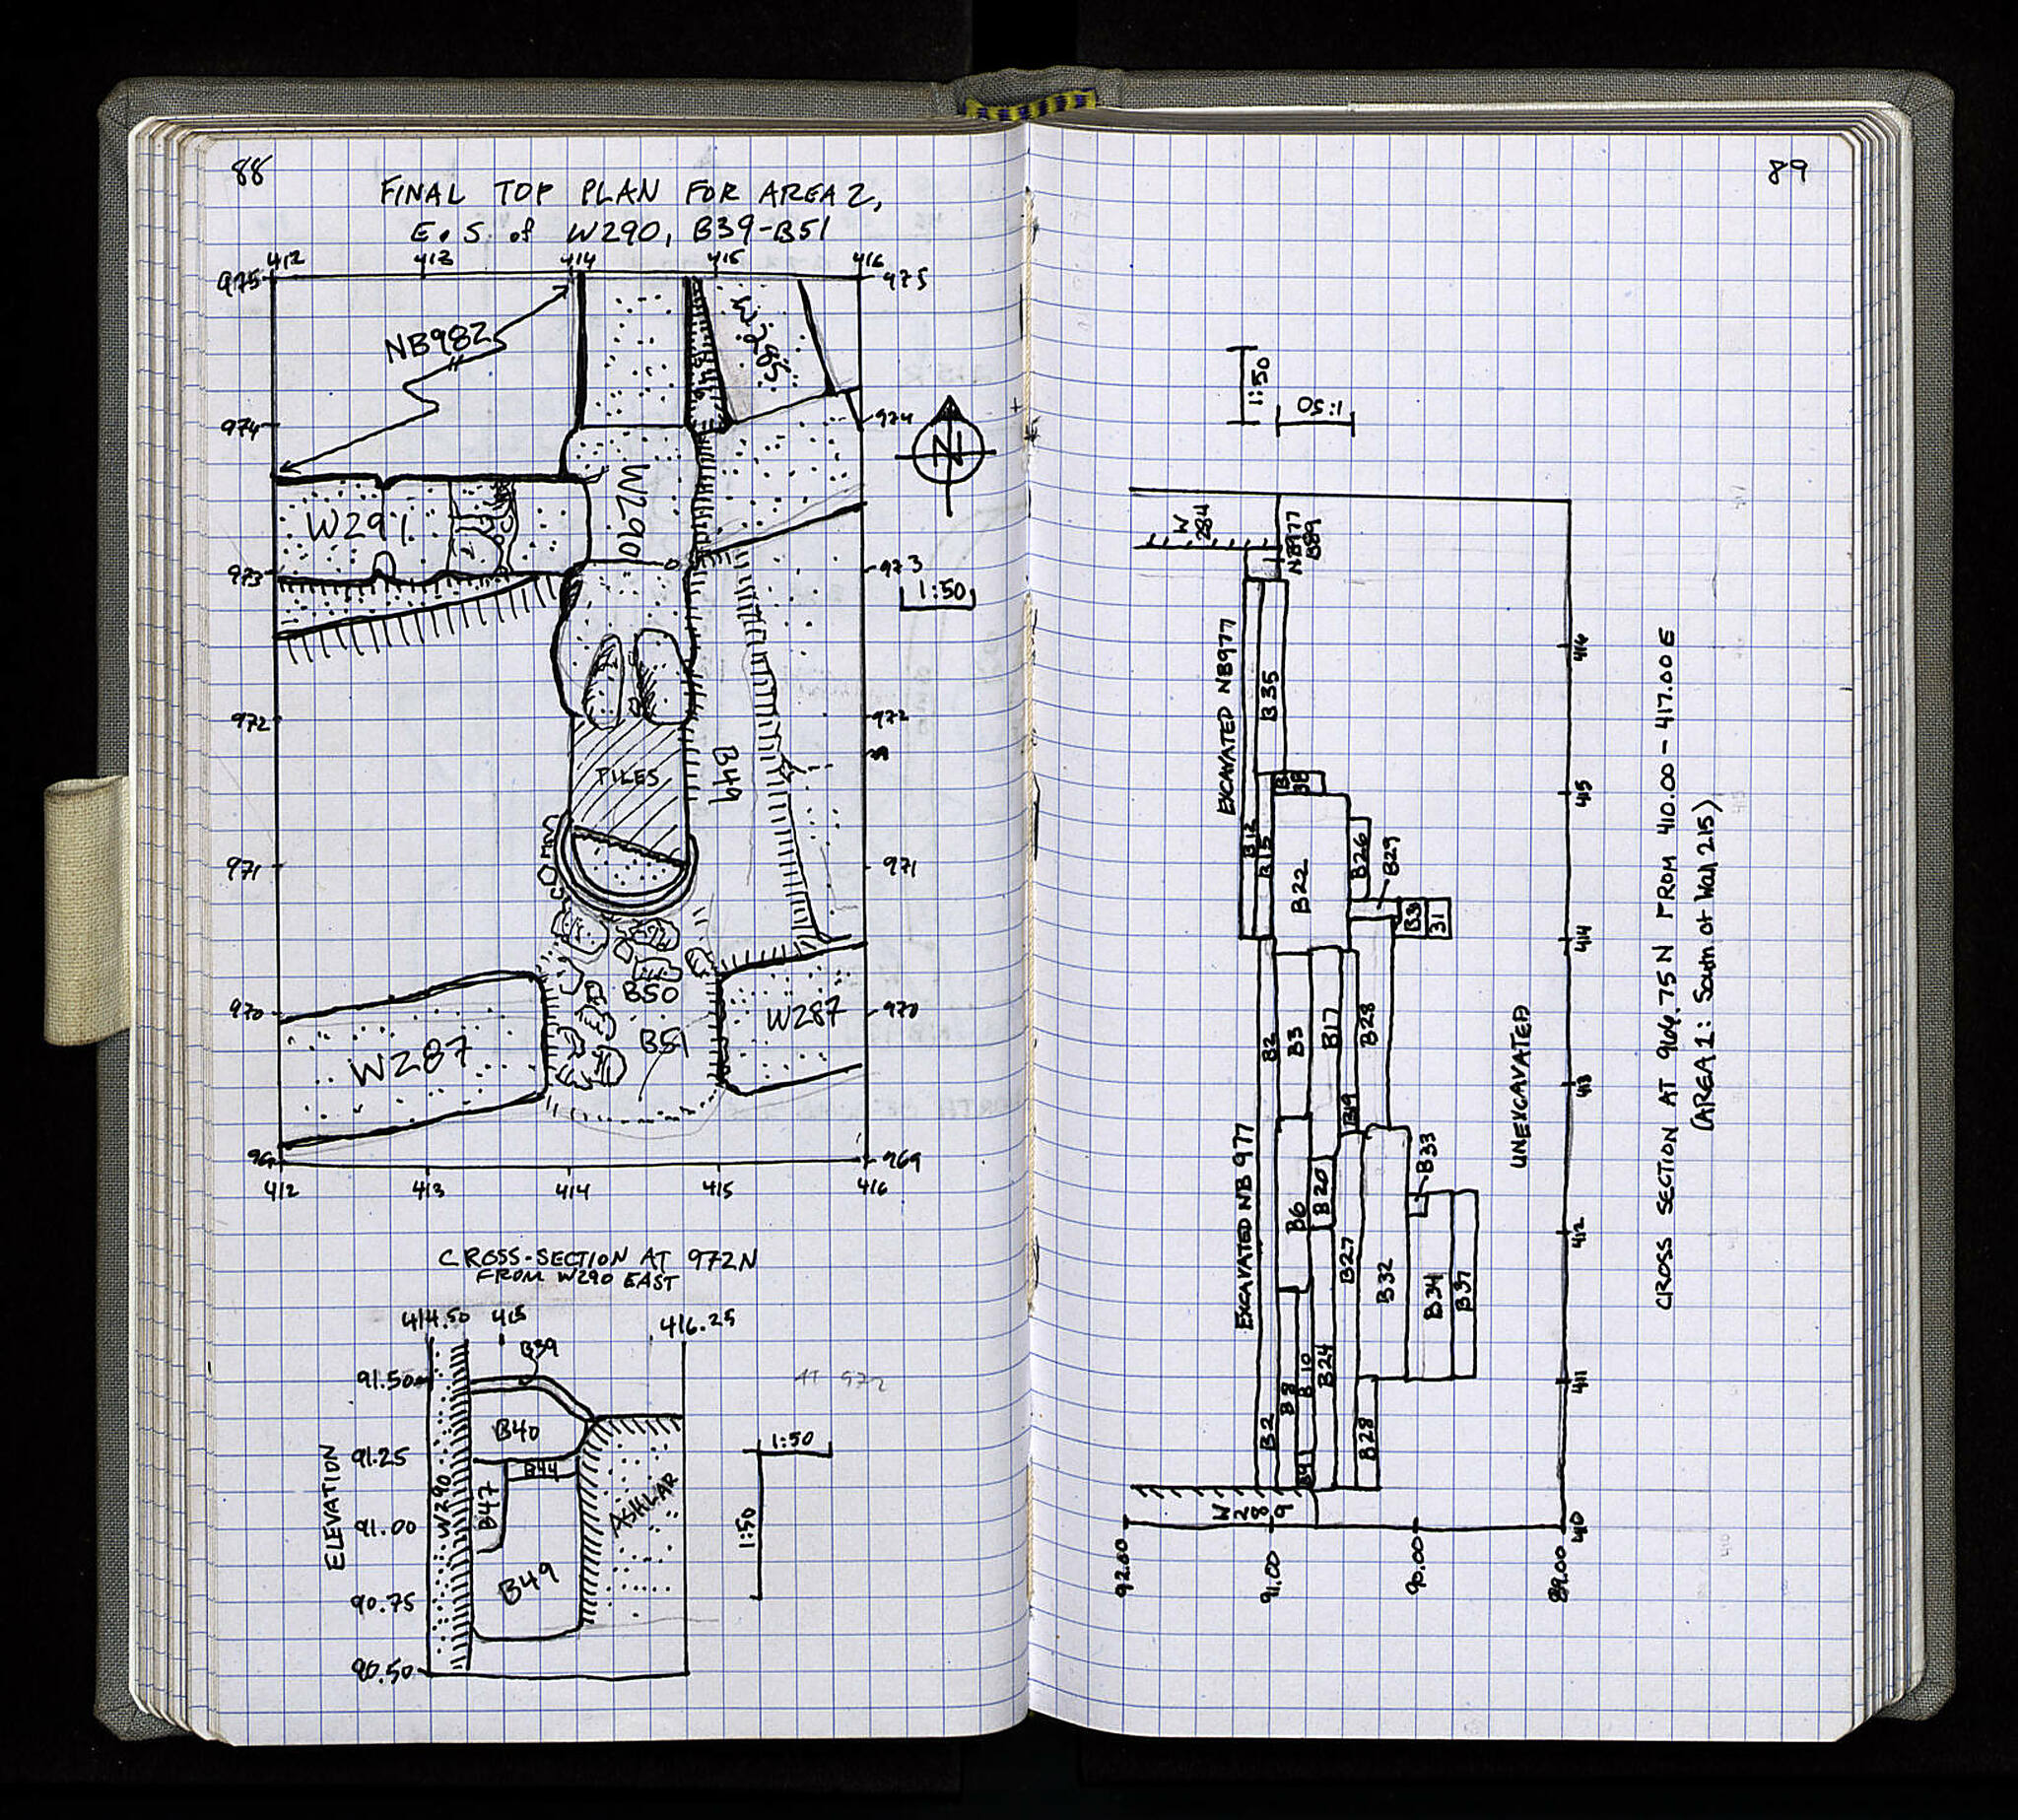 88
FINAL TOP PLAN FOR AREA 2,
E. S. of W290, B39-B51
412 413 414 415 416
975 975
NB982
W285
974 974
N
W290
W291
973 973
1:50
972 972
PILES
B49
971 971
B50
970 970
W287
B51
W287
969
412 413 414 415 416
CROSS-SECTION AT 972N
FROM W290 EAST
414.50 415 416.25
B39
91.50
B40
91.25
B44
ELEVATION
W290
B47
ASHLAR
91.00
1:50
1:50
B49
90.75
90.50
AT 972
89
1:50
1:50
W
284
NB977
B89
EXCAVATED NB977
B35
416
B
38
415
B12
B15
B22
B26
B29
B31
414
B2
B3
B17
B23
413
B19
UNEXCAVATED
EXCAVATED NB 977
B33
B6
B20
412
B27
B32
B34
B37
B2
B8
B10
B24
B28
411
B4
W
289
410
92.00
91.00
90.00
89.00
CROSS SECTION AT 964.75 N FROM 410.00 - 417.00 E
(AREA 1: South of Wall 215)